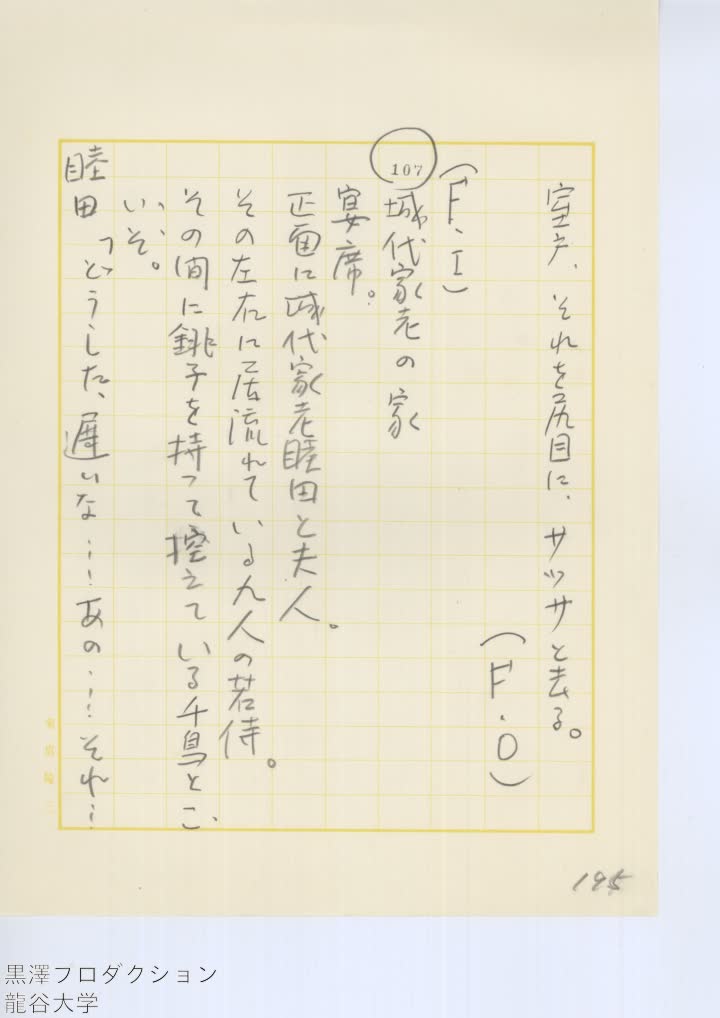 室戸、それを尻目に、サッサと去る。
(F・O)
(F・I)
107 城代家老の家
宴席。
正面に城代家老睦田と夫人。
その左右に居流れている九人の若侍。
その間に銚子を持って控えている千鳥とこ
いそ。
睦田「どうした、遅いな…あの…それ…
195
黒澤プロダクション
龍谷大学